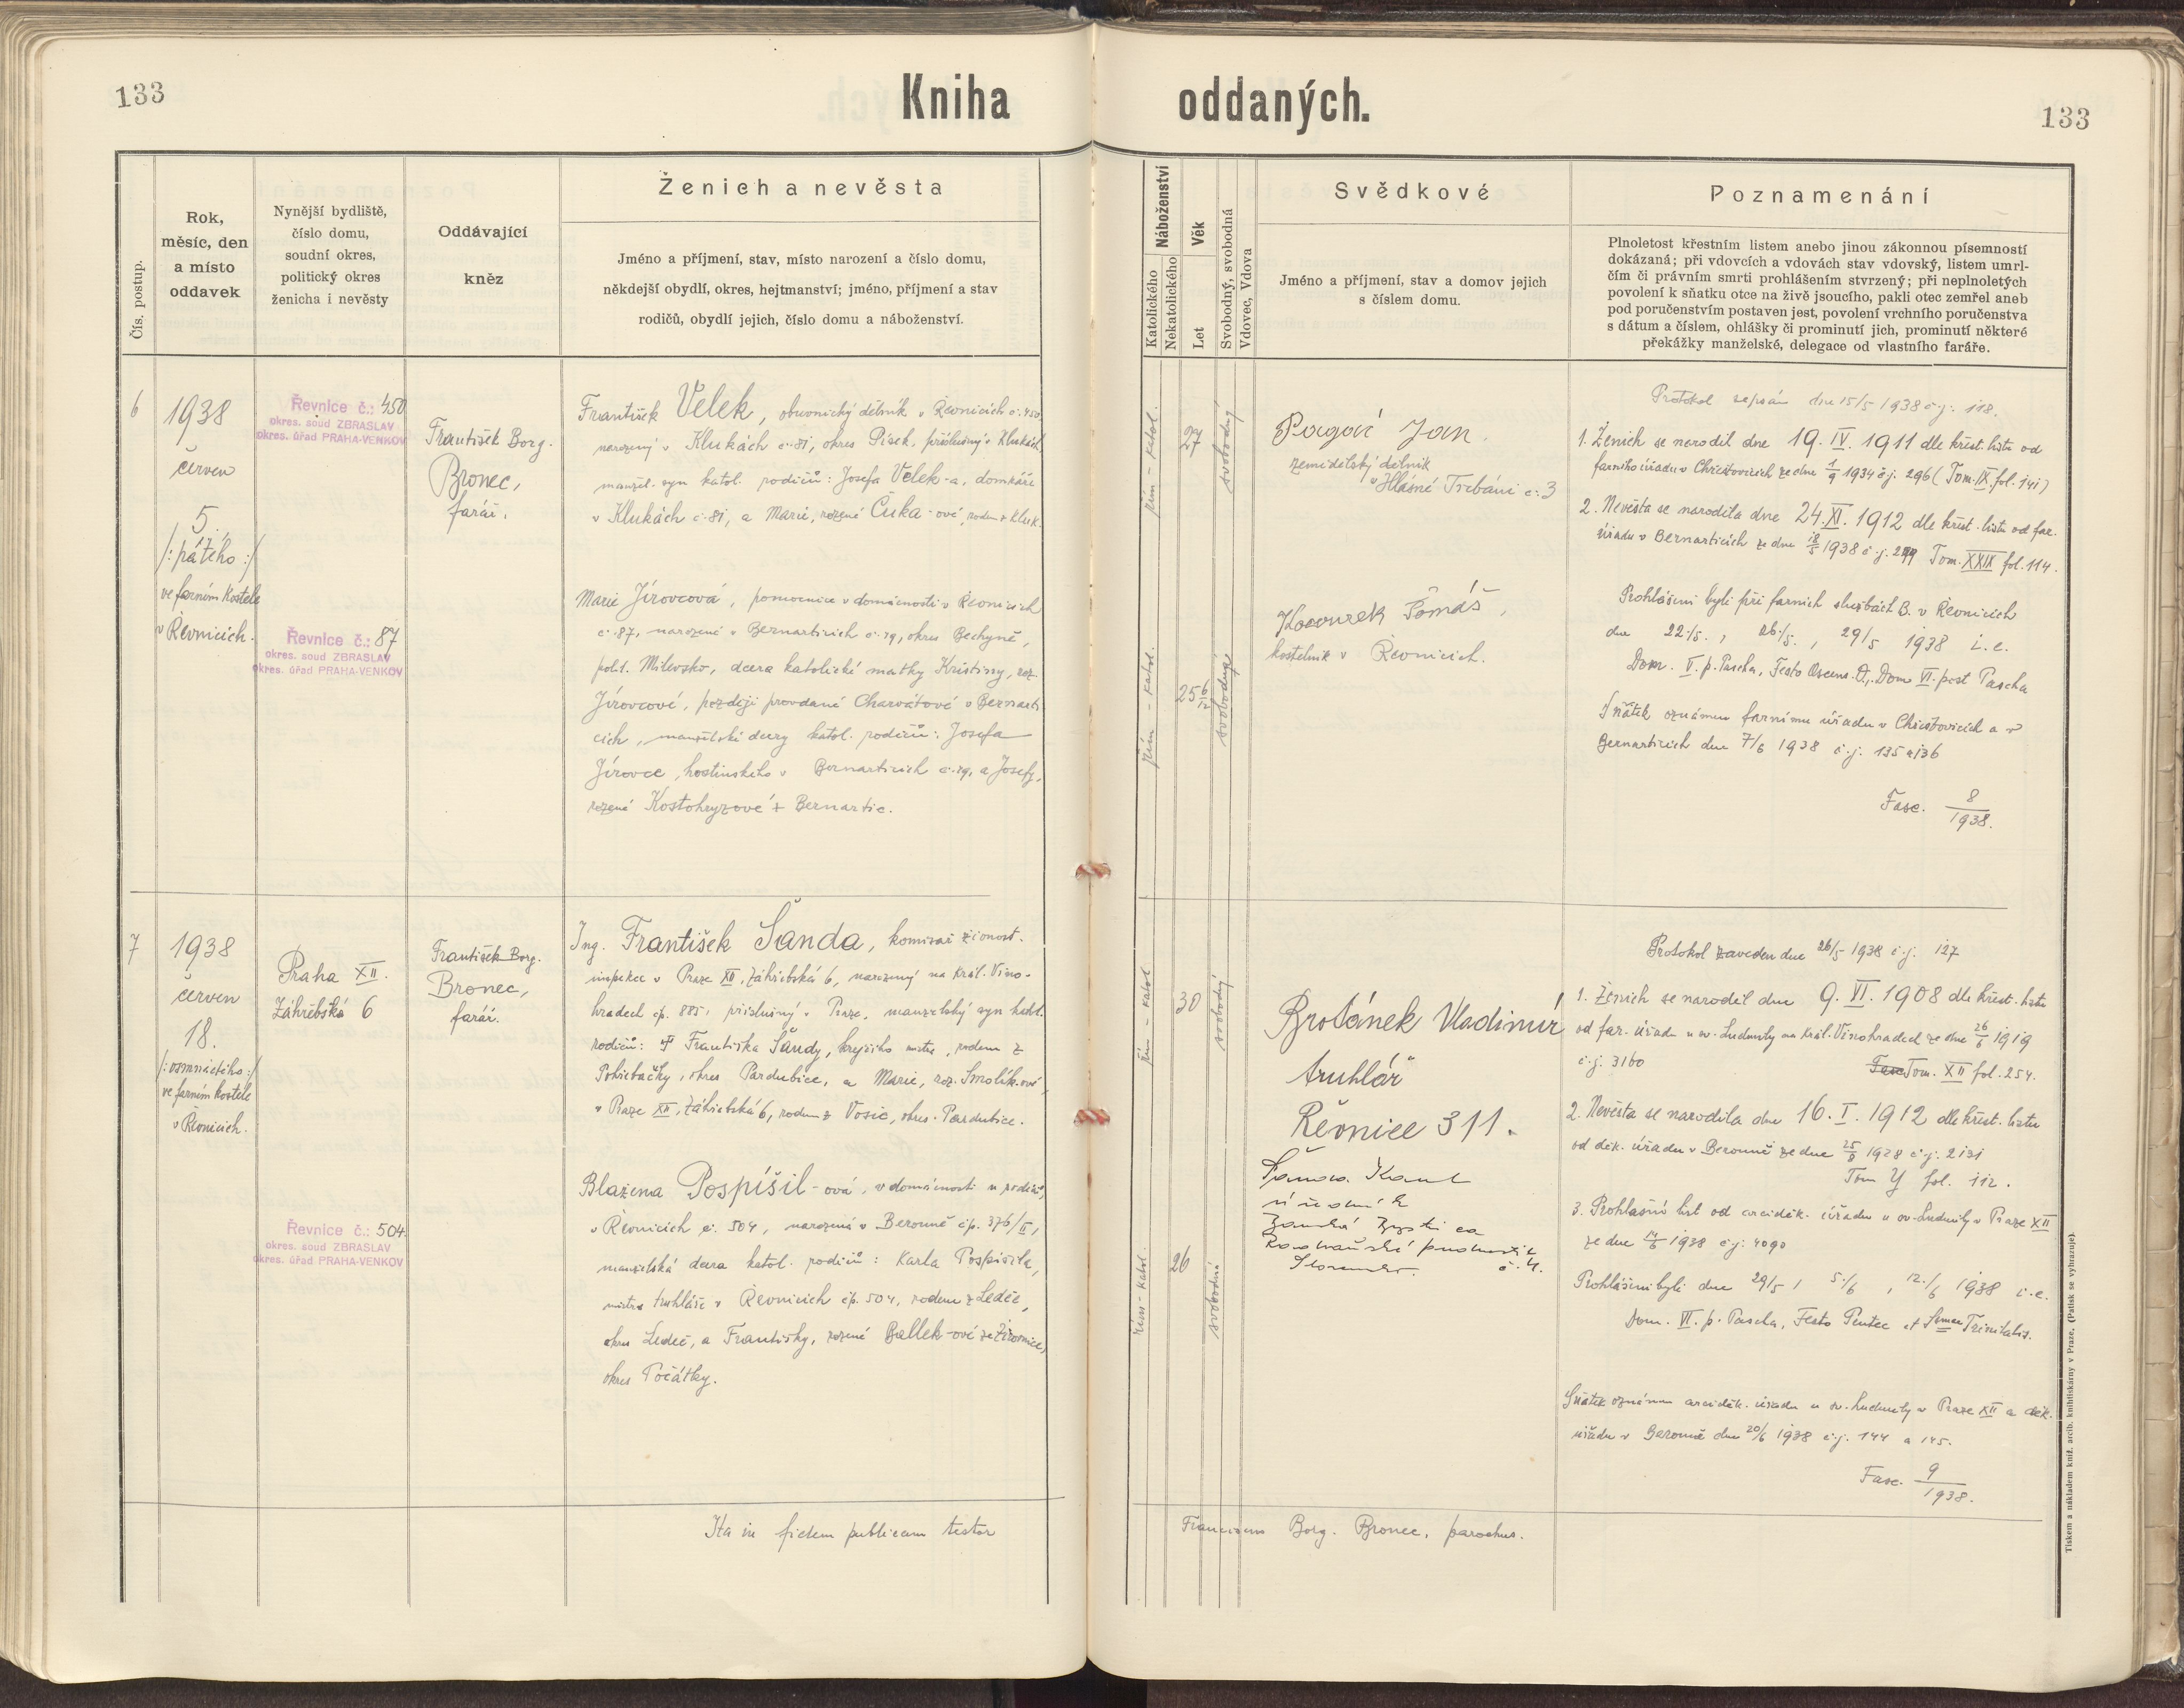 133
Kniha oddaných.
133
Čís. postup.
Rok,
měsíc, den
a místo
oddavek
Nynější bydliště,
číslo domu,
soudní okres,
politický okres
ženicha i nevěsty
Oddávající
kněz
Ženich a nevěsta
Jméno a příjmení, stav, místo narození a číslo domu,
někdejší obydlí, okres, hejtmanství; jméno, příjmení a stav
rodičů, obydlí jejich, číslo domu a náboženství.
Náboženství
Katolického
Nekatolického
Věk
Let
Svobodný, svobodná
Vdovec, Vdova
Svědkové
Jméno a příjmení, stav a domov jejich
s číslem domu.
Poznamenání
Plnoletost křestním listem anebo jinou zákonnou písemností
dokázaná; při vdovcích a vdovách stav vdovský, listem umrl-
čím či právním smrti prohlášením stvrzený; při neplnoletých
povolení k sňatku otce na živě jsoucího, pakli otec zemřel aneb
pod poručenstvím postaven jest, povolení vrchního poručenstva
s dátum a číslem, ohlášky či prominutí jich, prominutí některé
překážky manželské, delegace od vlastního faráře.
6
1938
červen
5.
/: pátého :/
ve farním kostele
v Řevnicích.
Řevnice č.: 450
okres. soud ZBRASLAV
okres. úřad PRAHA-VENKOV
Řevnice č.: 87
okres. soud ZBRASLAV
okres. úřad PRAHA-VENKOV
František Borg.
Bronec,
farář.
František Velek, obuvnický dělník v Řevnicích č. 450,
narozený v Klukách č. 81, okres Písek, příslušný v Klukách,
manžel. syn katol. rodičů: Josefa Velek-a, domkáře
v Klukách č. 81, a Marie, rozené Čuka-ové, rodem z Kluk.
Marie Jírovcová, pomocnice v domácnosti v Řevnicích
č. 87, narozená v Bernarticích č. 79, okres Bechyně,
polit. Milevsko, dcera katolické matky Kristiny, roz.
Jírovcové, později provdané Charvátové v Bernarti
cích, manželské dcery katol. rodičů: Josefa
Jírovce, hostinského v Bernarticích č. 79, a Josefy,
rozené Kostohryzové z Bernartic.
řím - katol.
27
svobodný
řím - katol.
25 6/12
svobodná
Pagáč Jan.
zemědělský dělník
v Hlásné Třebáni č. 3
Kocourek Tomáš,
kostelník v Řevnicích.
Protokol sepsán dne 15/5 1938 č.j. 118.
1. Ženich se narodil dne 19. IV. 1911 dle křest. listu od
farního úřadu v Chřešťovicích ze dne 1/9 1934 č.j. 296 (Tom. IX. fol. 141)
2. Nevěsta se narodila dne 24. XI. 1912 dle křest. listu od far.
úřadu v Bernarticích ze dne 18/5 1938 č.j. 299 Tom. XXIX fol. 114.
Prohlášeni byli při farních službách B. v Řevnicích
dne 22/5., 26/5., 29/5 1938 i.e.
Dom. V. p. Pascha, Festo Ascens. D., Dom VI. post Pascha
Sňatek oznámen farnímu úřadu v Chřešťovicích a v
Bernarticích dne 7/6 1938 č.j. 135 a 136
Fasc. 8/1938.
7
1938
červen
18.
/: osmnáctého :/
ve farním kostele
v Řevnicích.
Praha XII.
Záhřebská 6
Řevnice č.: 504
okres. soud ZBRASLAV
okres. úřad PRAHA-VENKOV
František Borg.
Bronec,
farář.
Ing. František Šanda, komisař živnost.
inspekce v Praze XII, Záhřebská 6, narozený na Král. Vino-
hradech čp. 885, příslušný v Praze, manželský syn katol.
rodičů: † Františka Šandy, krejčího mistra, rodem z
Pohřebačky, okres Pardubice, a Marie, roz. Smolík-ové
v Praze XII, Záhřebská 6, rodem z Vosic, okres. Pardubice.
Blažena Pospíšil-ová, v domácnosti u rodičů,
v Řevnicích č. 504, narozená v Berouně čp. 376/II,
manželská dcera katol. rodičů: Karla Pospíšila,
mistra truhláře v Řevnicích čp. 504, rodem z Ledče,
okres Ledeč, a Františky, rozené Ballek-ové ze Žirovnice,
okres Počátky.
řím - katol
30
svobodný
řím - katol.
26
svobodná
Brotánek Vladimír
truhlář
Řevnice 311.
úředník
č. 4.
Slovensko.
Protokol zaveden dne 26/5 1938 č.j. 127
1. Ženich se narodil dne 9. VI. 1908 dle křest. listu
od far. úřadu u sv. Ludmily na Král. Vinohradech ze dne 26/6 1919
č.j. 3160 Fasc Tom. XII fol. 254.
2. Nevěsta se narodila dne 16. I. 1912 dle křest. listu
od děk. úřadu v Berouně ze dne 25/8 1928 č.j. 2131
Tom Y fol. 112.
3. Prohlašní list od arciděk. úřadu u sv. Ludmily v Praze XII
ze dne 14/6 1938 č.j. 4090
Prohlášeni byli dne 29/5, 5/6, 12/6 1938 i.e.
Dom. VI. p. Pascha, Festo Pentec et Ssmae Trinitatis.
Sňatek oznámen arciděk. úřadu u sv. Ludmily v Praze XII a děk.
úřadu v Berouně dne 20/6 1938 č.j. 144 a 145.
Fasc. 9/1938.
Ita in fidem publicam testor
Franciscus Borg. Bronec, parochus.
Tiskem a nákladem kníž. arcib. knihtiskárny v Praze. (Patisk se vyhrazuje).